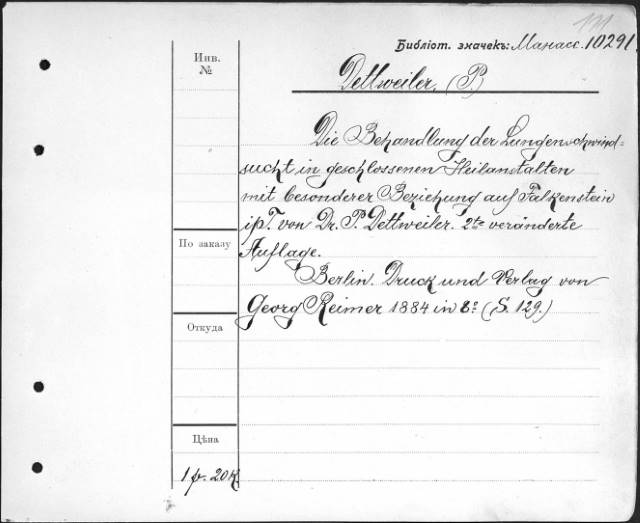 Библіот. значекъ: Манасс. 10291.
Инв.
№
Dettweiler. (P.)
Die Behandlung der Lungenschwind-
sucht in geschlossenen Heilanstalten
mit besonderer Beziehung auf Falkenstein
i/T. von Dr. P. Dettweiler. 2te veränderte
Auflage.
По заказу
Berlin. Druck und Verlag von
Georg Reimer 1884 in 8º (S. 129.)
Откуда
Цѣна
1 р. 20 к.